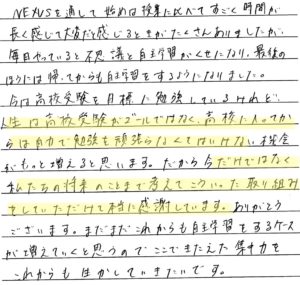 NEXUSを通して始めは授業に比べてすごく時間が
長く感じて大変だと感じるときがたくさんありましたが、
毎日やっていると不思議と自主学習がくせになり、最後の
ほうには帰ってからも自主学習をするようになりました。
今は高校受験を目標に勉強しているけれど、
人生は高校受験がゴールではなく、高校に入ってか
らは自力で勉強を頑張らなくてはいけない機会
がもっと増えると思います。だから今だけではなく
私たちの将来のことまで考えてこういった取り組み
をしていただけて本当に感謝しています。ありがとう
ございます。まだまだこれからも自主学習をするケース
が増えていくと思うのでここできたえた集中力を
これからも生かしていきたいです。